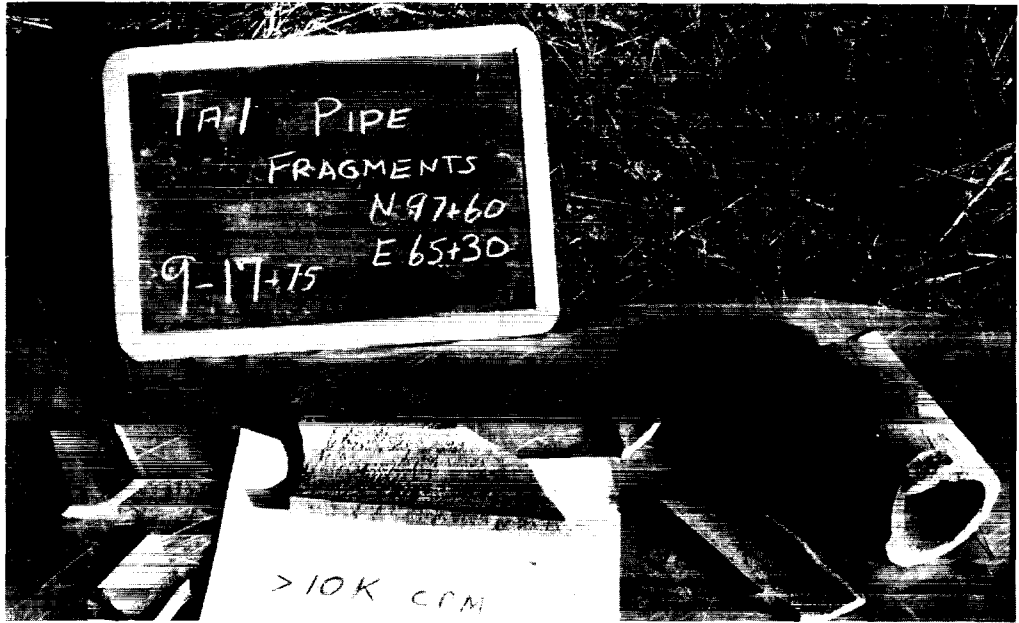 TA-1 PIPE
FRAGMENTS
N 97+60
E 65+30
9-17-75
>10K CPM